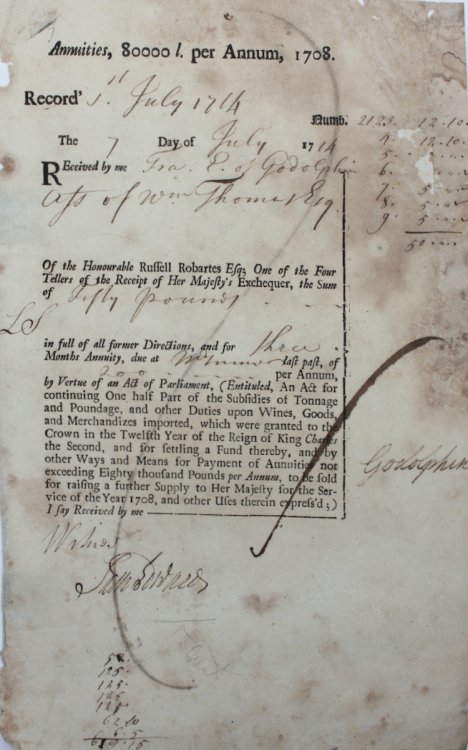 Annuities, 80000 l. per Annum, 1708.
Record' 1st July 1714
Numb. 2125. 12.10.
4. 12.10.
The 7 Day of July 1714
5.
Received by me Fra. E. of Godolphin
6.
7. 5
Ass of Wm Thomas Esq.
8. 5
9. 5
50
Of the Honourable Russell Robartes Esq; One of the Four
Tellers of the Receipt of Her Majesty's Exchequer, the Sum
of fifty pounds
LS
in full of all former Directions, and for three
Months Annuity, due at last past, of
200 per Annum,
by Vertue of an Act of Parliament, (Entituled, An Act for
continuing One half Part of the Subsidies of Tonnage
and Poundage, and other Duties upon Wines, Goods,
and Merchandizes imported, which were granted to the
Crown in the Twelfth Year of the Reign of King Charles
the Second, and for settling a Fund thereby, and by
other Ways and Means for Payment of Annuities not
exceeding Eighty thousand Pounds per Annum, to be sold
for raising a further Supply to Her Majesty for the Ser-
vice of the Year 1708, and other Uses therein express'd;)
I say Received by me
Godolphin
Witnes
125.
125.
125.
125.
62.10